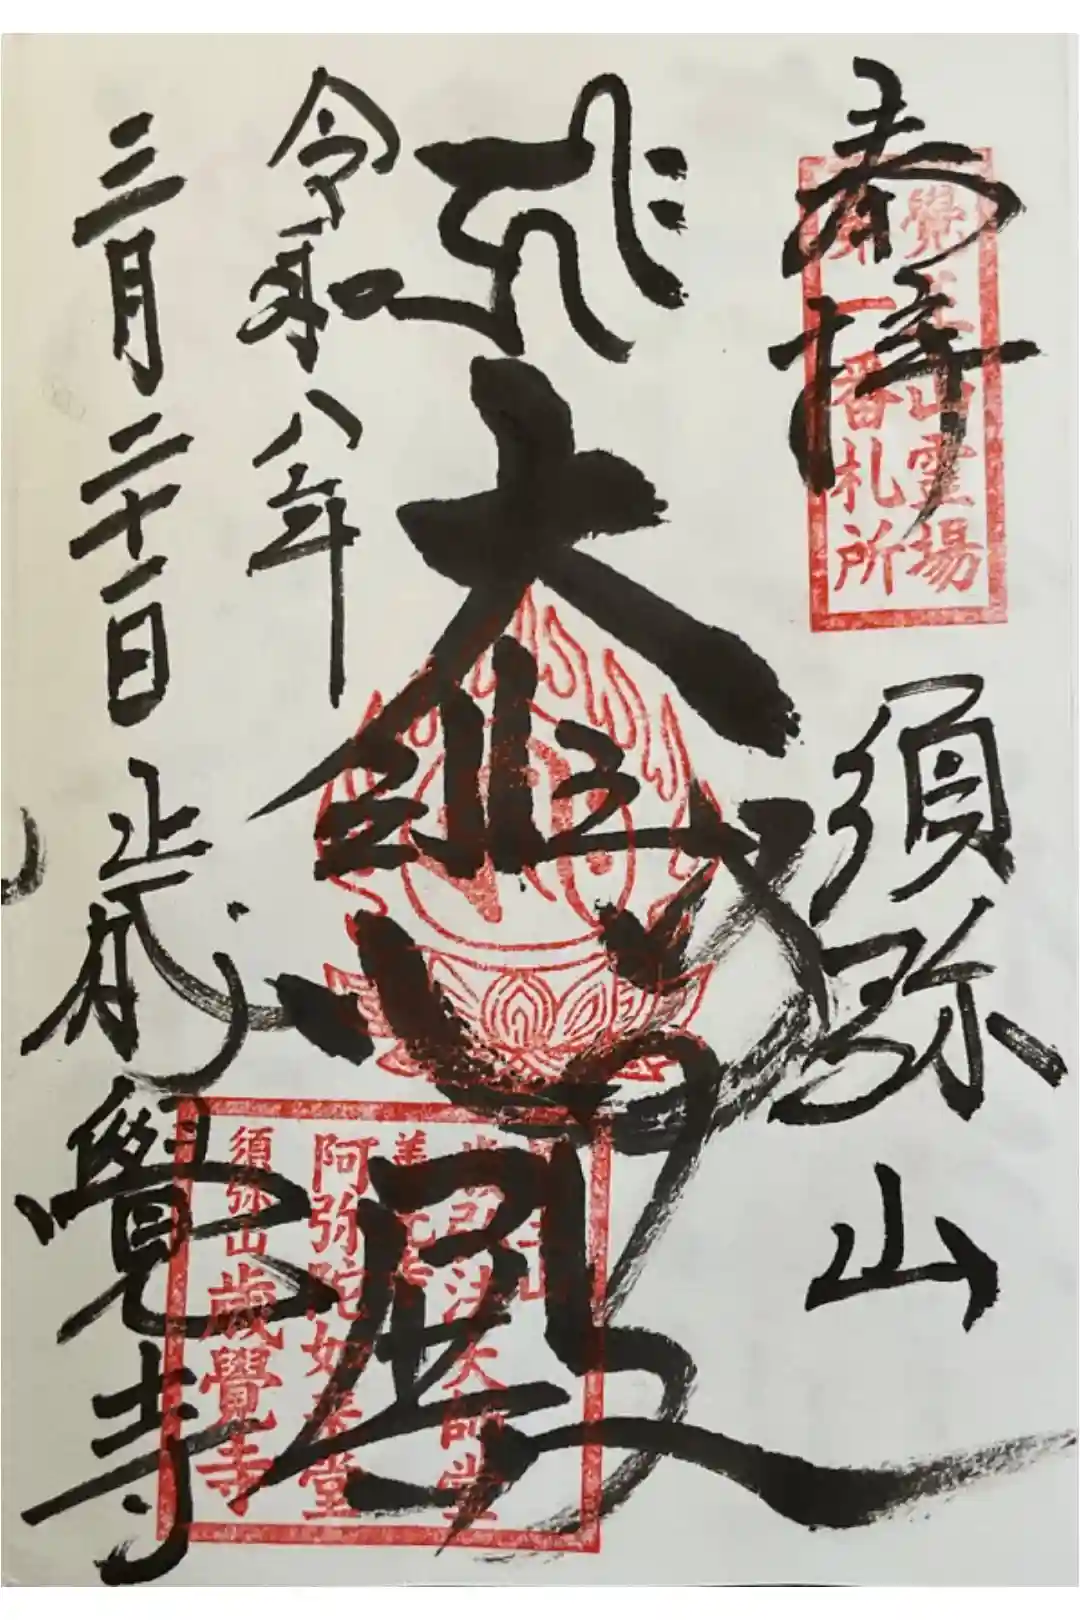 奉拝
須弥山
覺王山霊場
第一番札所
大悲殿
令和八年
三月二十一日
歳覺寺
弘法大師堂
阿弥陀如来堂
須弥山歳覺寺